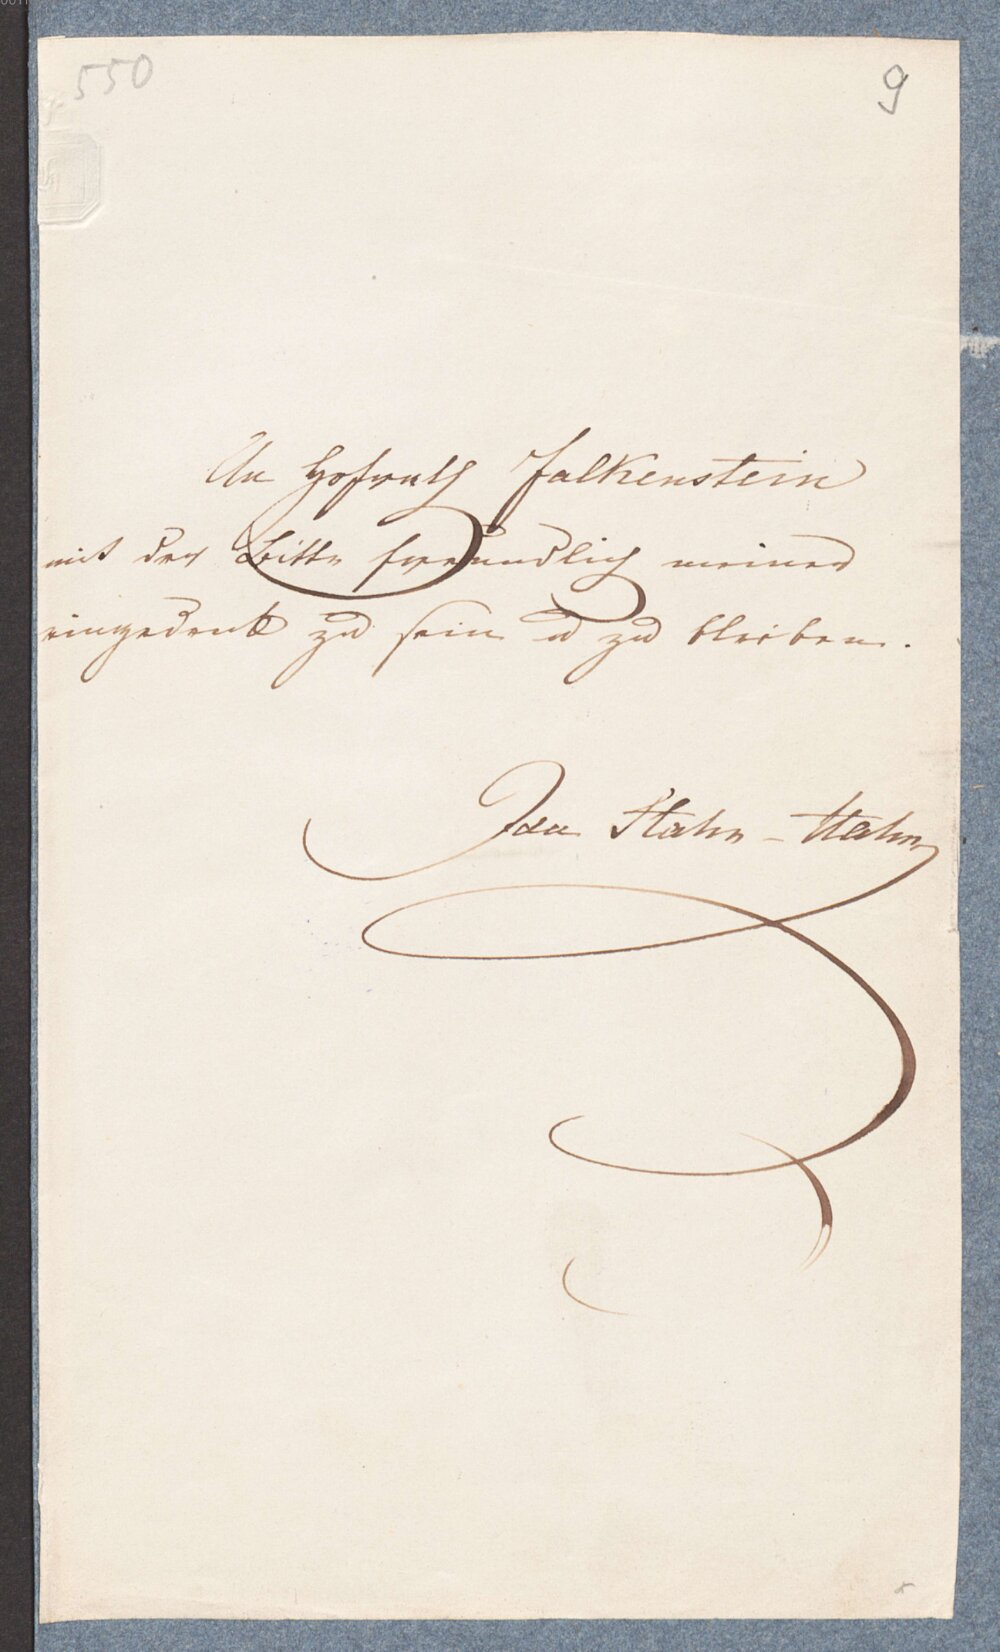 550
9
An Hofrath Falkenstein
mit der Bitte freundlich meiner
eingedenk zu sein u zu bleiben.
Ida Hahn-Hahn